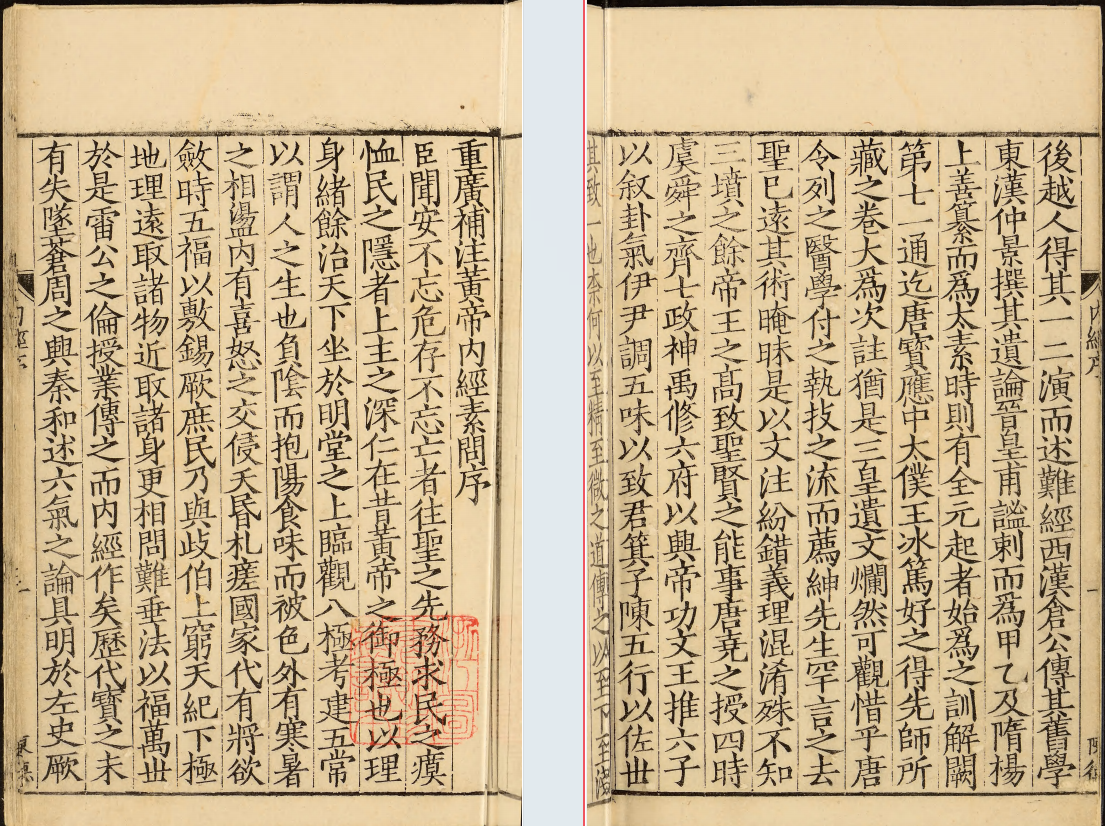 重廣補注黃帝內經素問序
臣聞安不忘危存不忘亡者往聖之先務求民之瘼
恤民之隱者上主之深仁在昔黃帝之御極也以理
身緒餘治天下坐於明堂之上臨觀八極考建五常
以謂人之生也負陰而抱陽食味而被色外有寒暑
之相盪內有喜怒之交侵夭昏札瘥國家代有將欲
斂時五福以敷錫厥庶民乃與歧伯上窮天紀下極
地理遠取諸物近取諸身更相問難垂法以福萬世
於是雷公之倫授業傳之而內經作矣歷代寶之未
有失墜蒼周之興秦和述六氣之論具明於左史厥
內經序
一
後越人得其一二演而述難經西漢倉公傳其舊學
東漢仲景撰其遺論晉皇甫謐剌而為甲乙及隋楊
上善纂而為太素時則有全元起者始為之訓解闕
第七一通迄唐寶應中太僕王冰篤好之得先師所
藏之卷大為次註猶是三皇遺文爛然可觀惜乎唐
令列之醫學付之執技之流而薦紳先生罕言之去
聖已遠其術晻昧是以文注紛錯義理混淆殊不知
三墳之餘帝王之高致聖賢之能事唐堯之授四時
虞舜之齊七政神禹修六府以興帝功文王推六子
以敘卦氣伊尹調五味以致君箕子陳五行以佐世
其致一也奈何以至精至微之道傳之以至下至淺